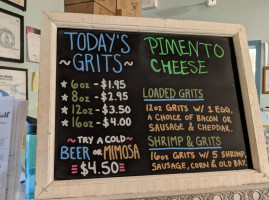 TODAY'S
~ GRITS ~
★ 6oz - $1.95
★ 8oz - $2.95
★ 12oz - $3.50
★ 16oz - $4.00
~ TRY A COLD ~
BEER OR MIMOSA
$4.50
PIMENTO
CHEESE
LOADED GRITS
12oz GRITS W/ 1 EGG,
A CHOICE OF BACON OR
SAUSAGE & CHEDDAR..
SHRIMP & GRITS
16oz GRITS W/ 5 SHRIMP,
SAUSAGE, CORN & OLD BAY.